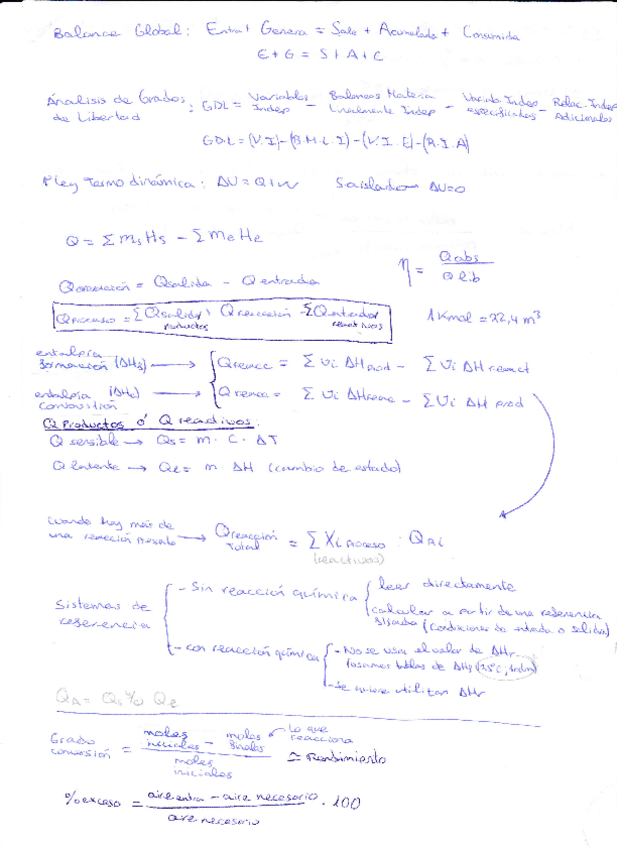 Balance Global: Entra + Genera = Sale + Acumulada + Consumida
E + G = S + A + C
Análisis de Grados de Libertad: GDL = Variables Indep - Balances Materia Linealmente Indep - Variab. Indep especificadas - Relac. Indep Adicionales
GDL = (V.I) - (B.M.L.I) - (V.I.E) - (R.I.A)
1ª ley Termodinámica: ΔU = Q + W S. aislado → ΔU = 0
Q = Σ ms Hs - Σ me He
η = Qabs / Qlib
= Qsalida - Q entrada
Qproceso = Σ Qsalida productos + Q reacción - Σ Qentrada reactivos
1 Kmol = 22,4 m³
entalpía formación (ΔHf) → Q reacc = Σ Vi ΔH prod - Σ Vi ΔH react
entalpía combustión (ΔHc) → Q reacc = Σ Vi ΔH reac - Σ Vi ΔH prod
Q Productos ó Q reactivos:
Q sensible → Qs = m · C · ΔT
Q latente → Qe = m · ΔH (cambio de estado)
Cuando hay más de una reacción → Q reacción Total = Σ Xi · QRi
(reactivos)
Sistemas de referencia
- Sin reacción química
leer directamente
calcular a partir de una referencia fijada (condiciones de entrada o salida)
- con reacción química
- No se usa el valor de ΔHr (usamos tablas de ΔHf (25°C, 1atm)
- Se quiere utilizar ΔHr
Grado conversión = moles iniciales - moles finales / moles iniciales ≃ Rendimiento
lo que reacciona
% exceso = aire entra - aire necesario / aire necesario · 100